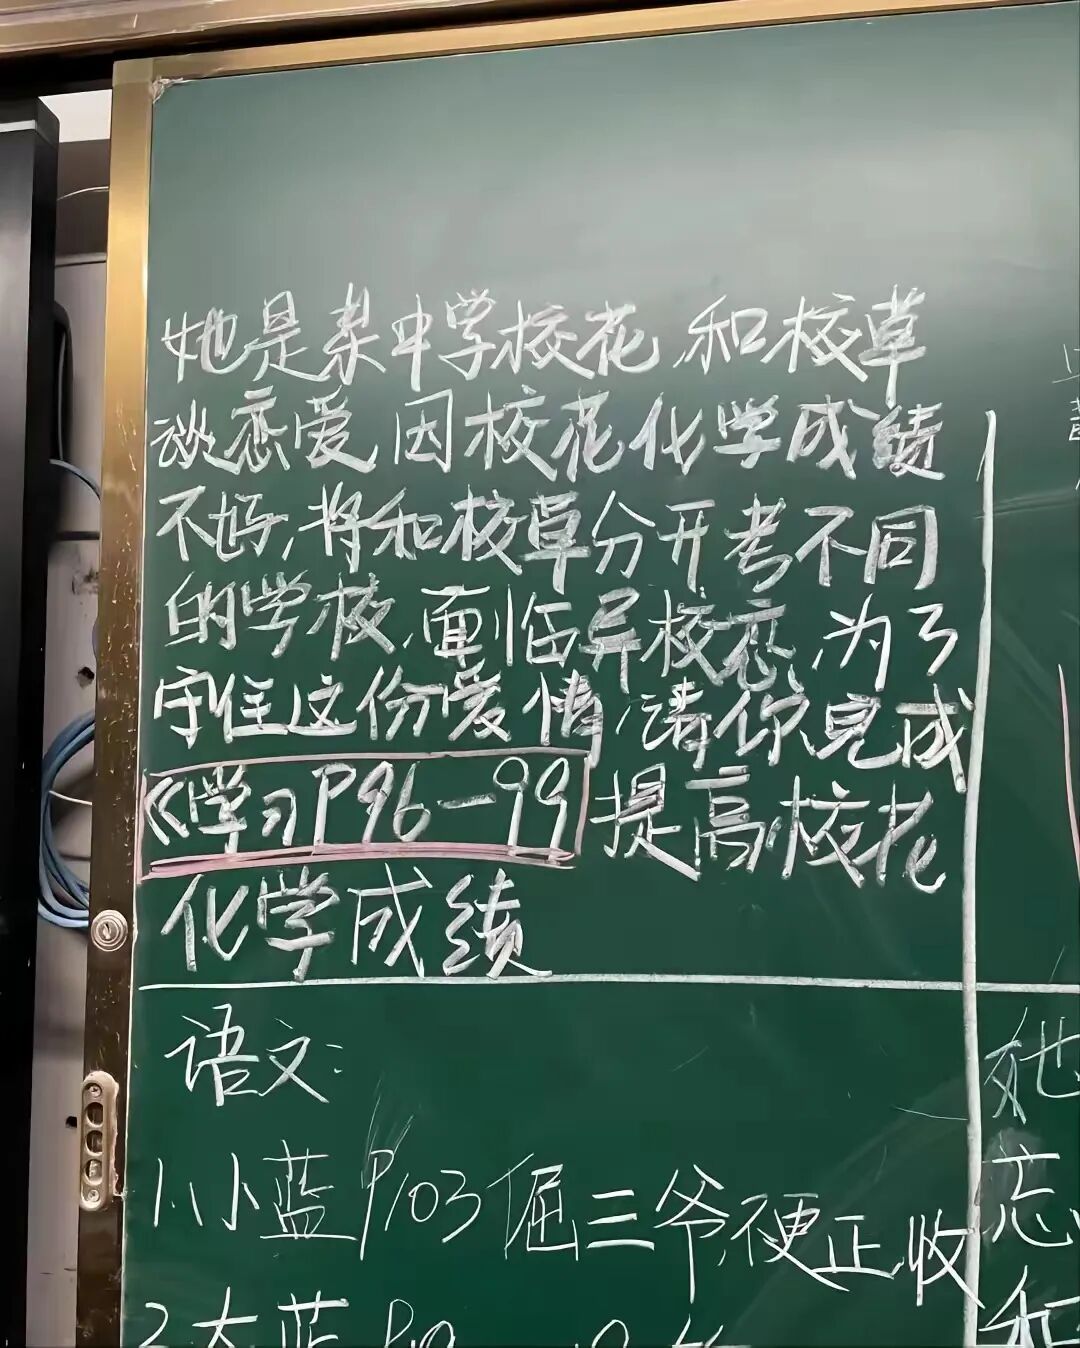 她是某中学校花,和校草
谈恋爱,因校花化学成绩
不好,将和校草分开考不同
的学校,面临异校恋,为了
守住这份爱情,请你完成
《学习P96—99 提高校花
化学成绩
语文:
1.小蓝P103倔三爷,便正收
2.大蓝
她
忘
和